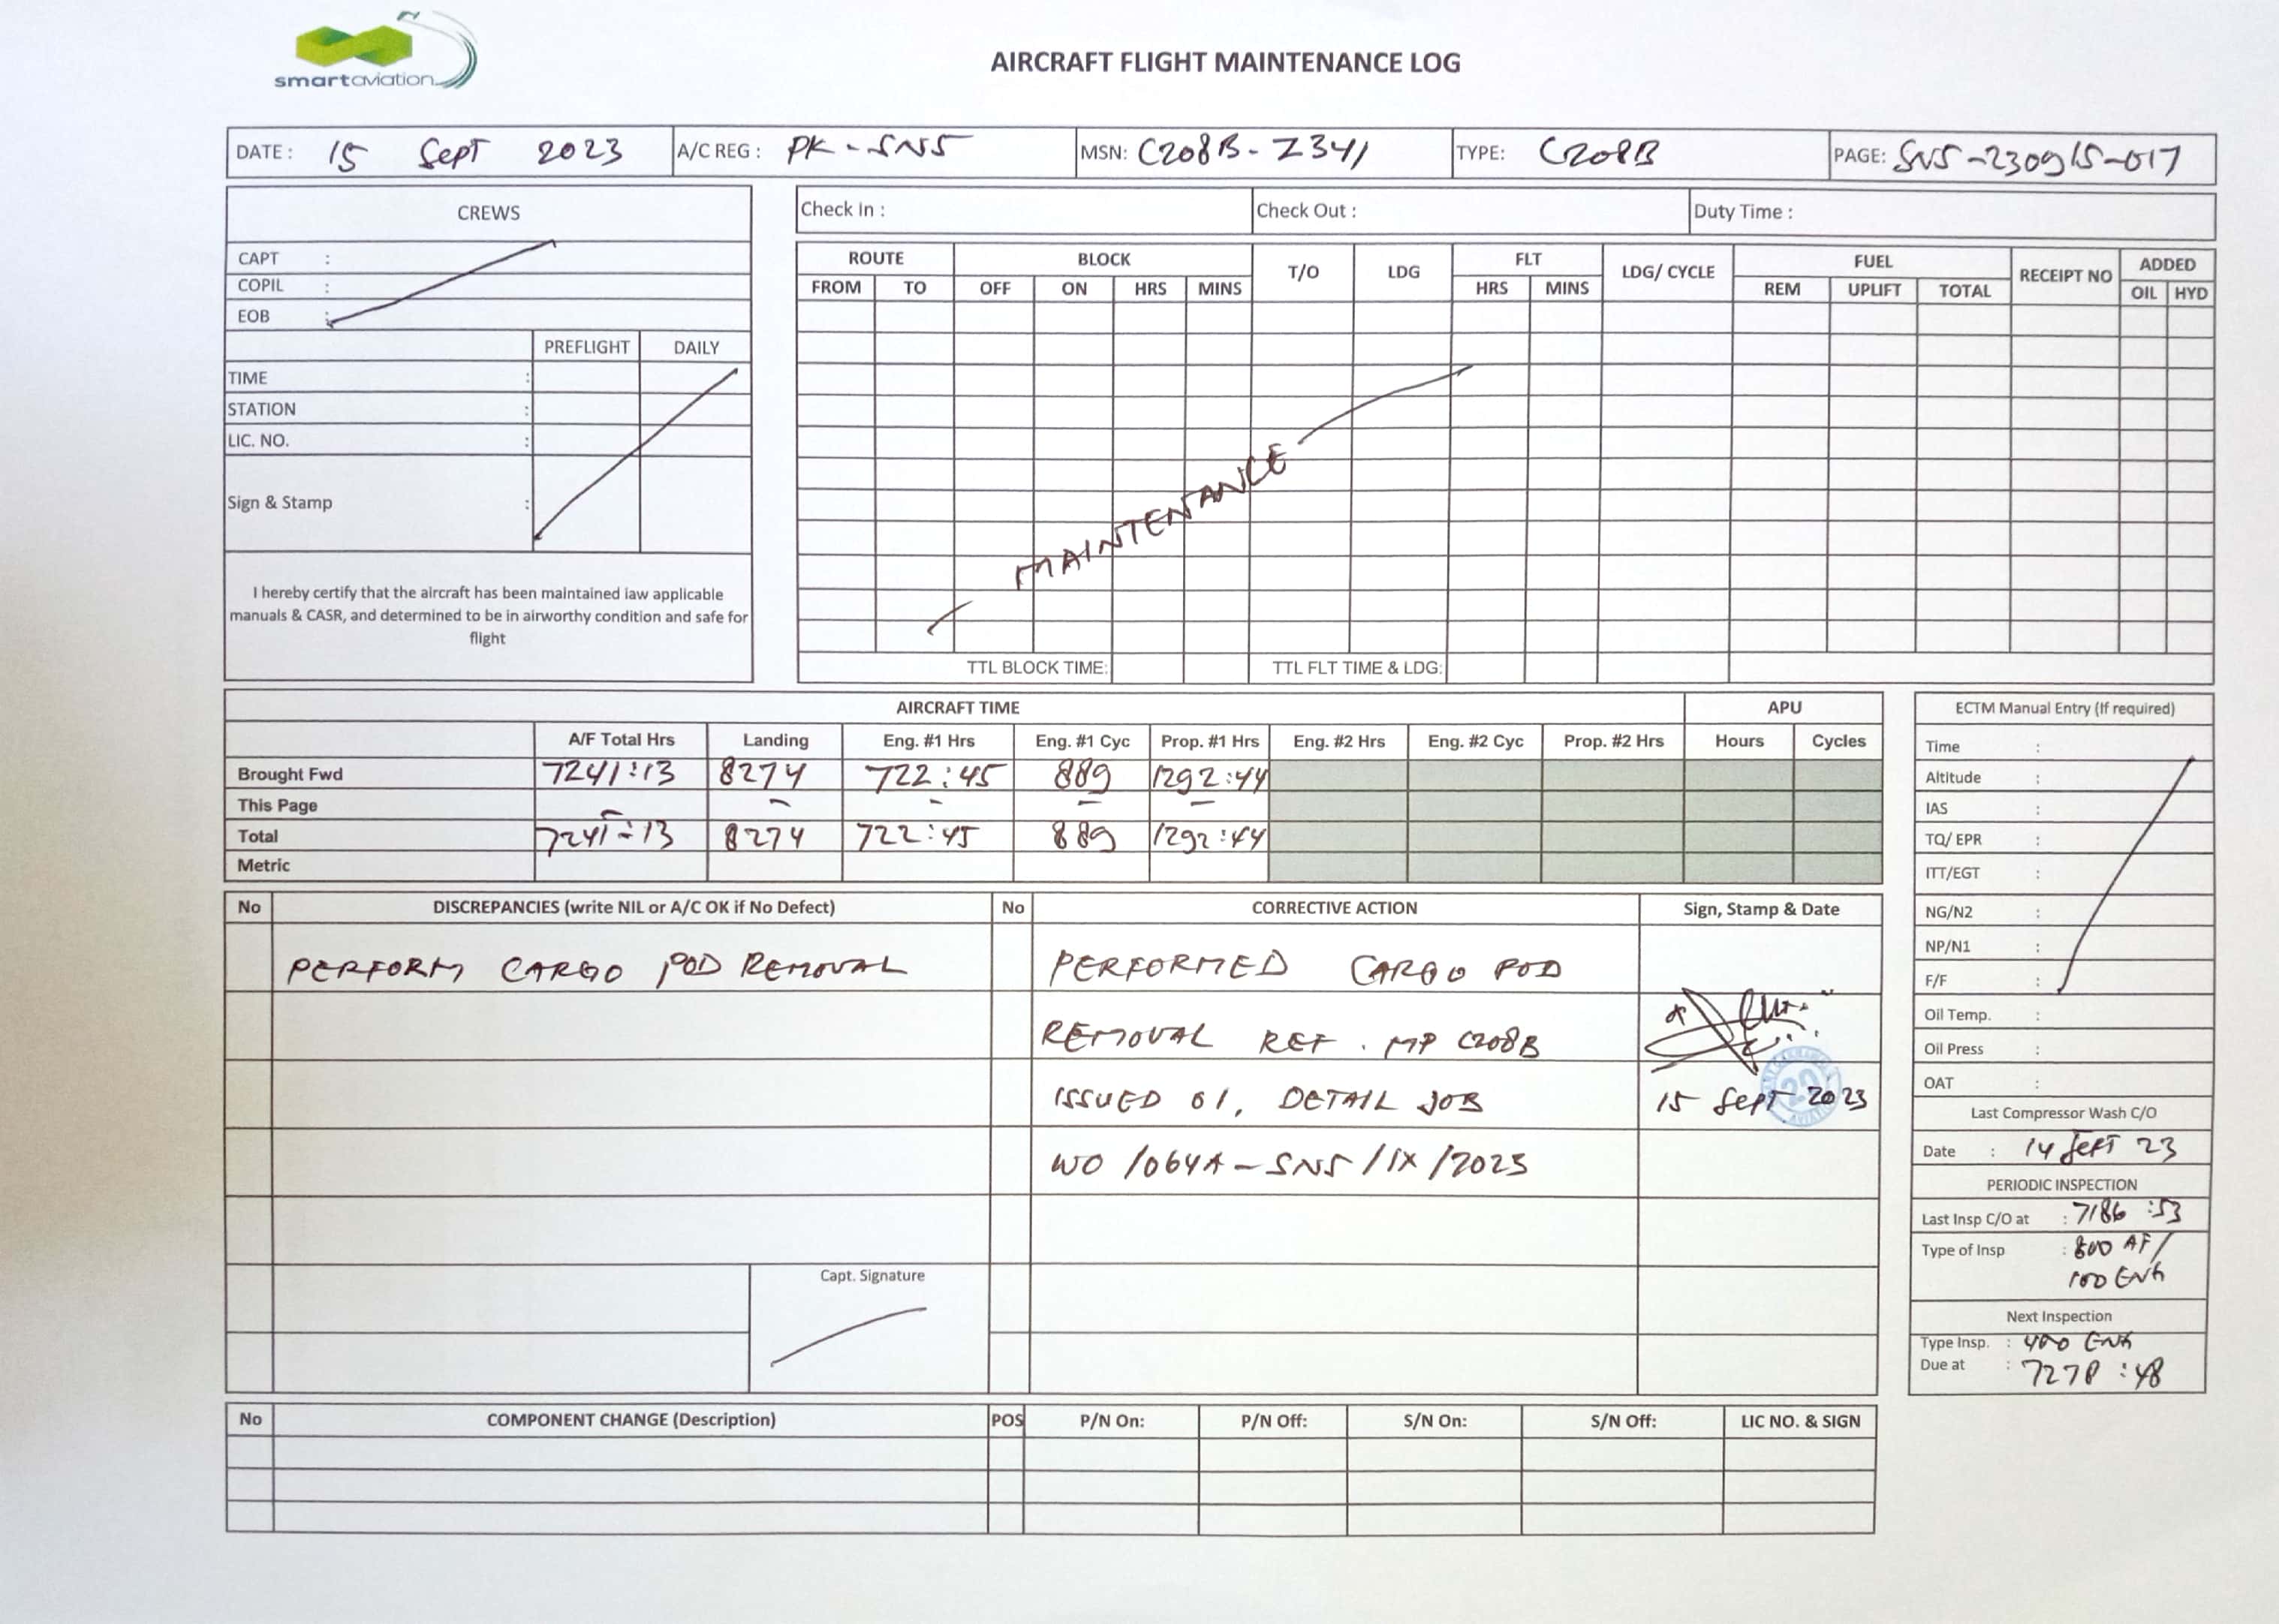 smartaviation
AIRCRAFT FLIGHT MAINTENANCE LOG
DATE : 15 Sept 2023 A/C REG : PK-SNS MSN: C208B-2341 TYPE: C208B PAGE: SNS-230915-017
CREWS
CAPT :
COPIL :
EOB :
PREFLIGHT DAILY
TIME :
STATION :
LIC. NO. :
Sign & Stamp :
I hereby certify that the aircraft has been maintained iaw applicable
manuals & CASR, and determined to be in airworthy condition and safe for
flight
Check In : Check Out : Duty Time :
ROUTE BLOCK T/O LDG FLT LDG/ CYCLE FUEL RECEIPT NO ADDED
FROM TO OFF ON HRS MINS HRS MINS REM UPLIFT TOTAL OIL HYD
MAINTENANCE
TTL BLOCK TIME: TTL FLT TIME & LDG:
AIRCRAFT TIME APU
A/F Total Hrs Landing Eng. #1 Hrs Eng. #1 Cyc Prop. #1 Hrs Eng. #2 Hrs Eng. #2 Cyc Prop. #2 Hrs Hours Cycles
Brought Fwd 7241:13 8274 722:45 889 1292:44
This Page - - - - -
Total 7241:13 8274 722:45 889 1292:44
Metric
ECTM Manual Entry (If required)
Time :
Altitude :
IAS :
TQ/ EPR :
ITT/EGT :
NG/N2 :
NP/N1 :
F/F :
Oil Temp. :
Oil Press :
OAT :
Last Compressor Wash C/O
Date : 14 Sept 23
PERIODIC INSPECTION
Last Insp C/O at : 7186:53
Type of Insp : 800 AF/
100 ENG
Next Inspection
Type Insp. : 400 ENG
Due at : 7278:48
No DISCREPANCIES (write NIL or A/C OK if No Defect) No CORRECTIVE ACTION Sign, Stamp & Date
PERFORM CARGO POD REMOVAL PERFORMED CARGO POD
REMOVAL REF. MP C208B
ISSUED 01, DETAIL JOB 15 Sept 2023
WO /064A-SNS/IX/2023
Capt. Signature
No COMPONENT CHANGE (Description) POS P/N On: P/N Off: S/N On: S/N Off: LIC NO. & SIGN